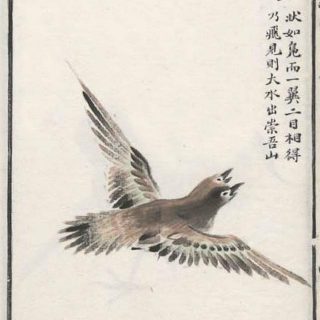 狀如鳧而一翼二目相得
乃飛見則大水出崇吾山